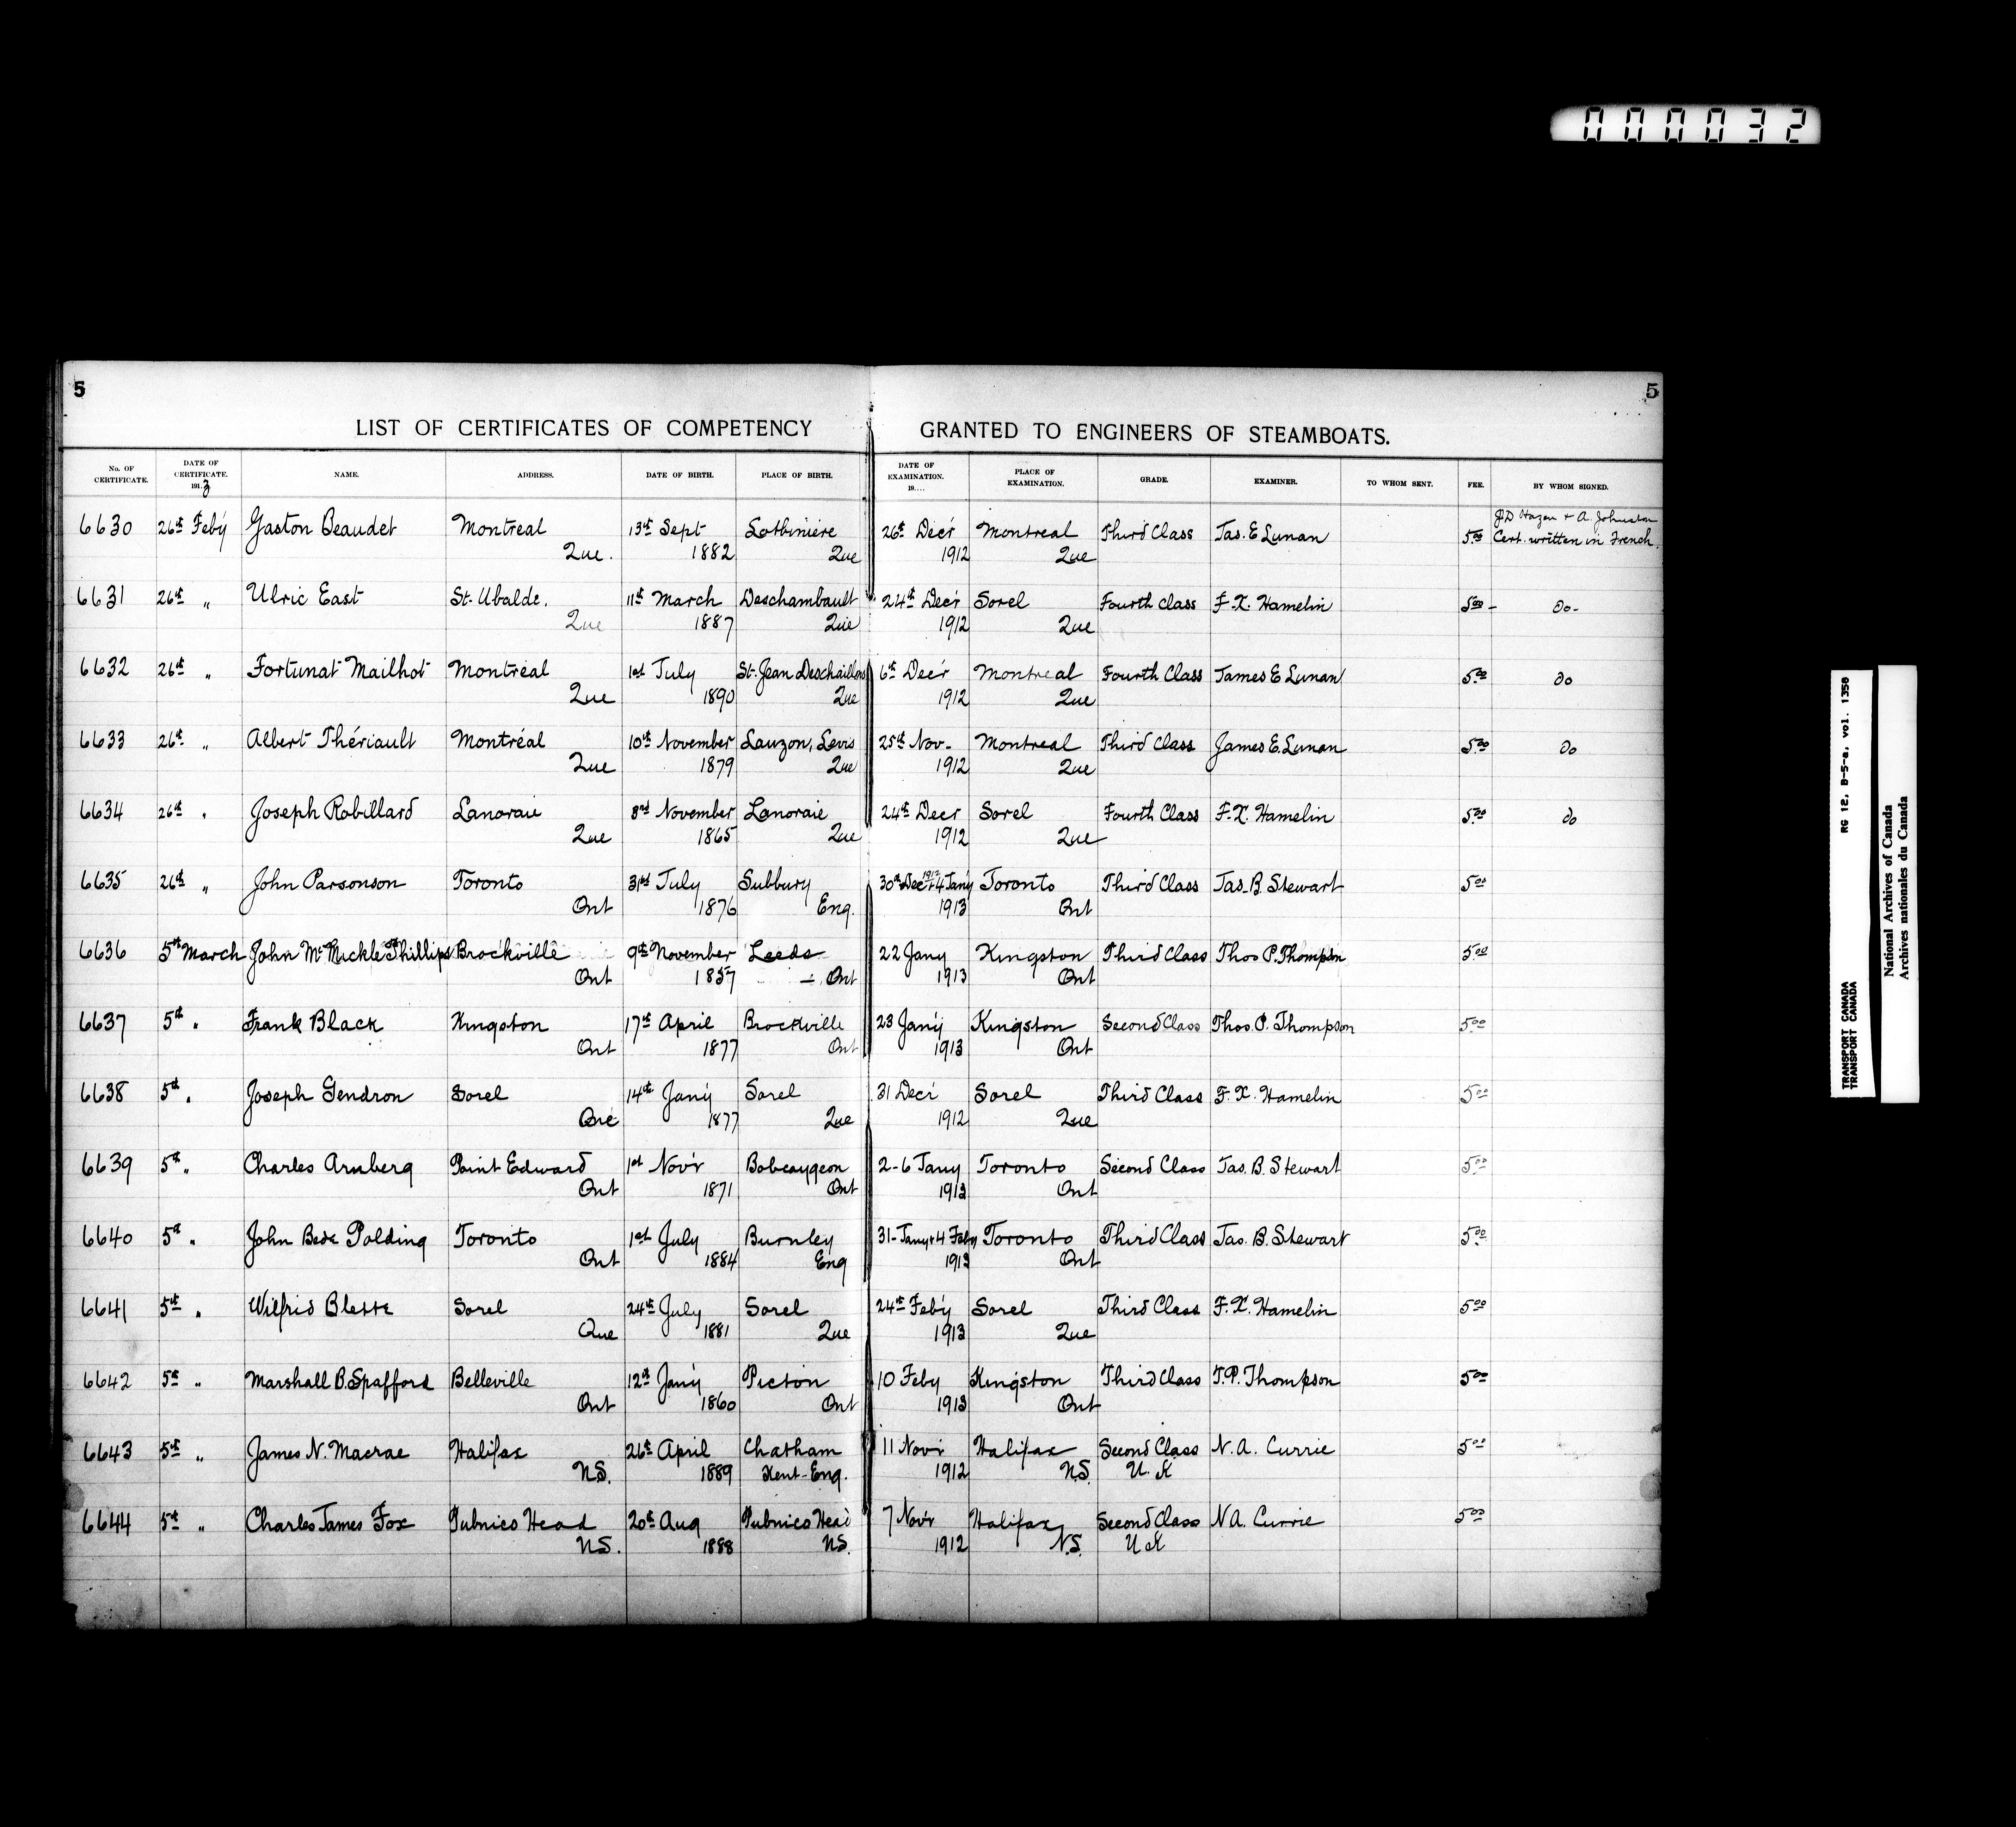 000032
5
5
LIST OF CERTIFICATES OF COMPETENCY GRANTED TO ENGINEERS OF STEAMBOATS.
No. OF CERTIFICATE. DATE OF CERTIFICATE. 1913 NAME. ADDRESS. DATE OF BIRTH. PLACE OF BIRTH. DATE OF EXAMINATION. 19.... PLACE OF EXAMINATION. GRADE. EXAMINER. TO WHOM SENT. FEE. BY WHOM SIGNED.
J.D Hazen + A. Johnston
6630 26th Feb'y Gaston Beaudet Montreal 13th Sept Lotbiniere 26th Dec'r Montreal Third Class Jas. E Lunan 5.00 Cert. written in French.
Que. 1882 Que 1912 Que
6631 26th " Ulric East St. Ubalde. 11th March Deschambault 24th Dec'r Sorel Fourth Class F.X. Hamelin 5.00 - Do-
Que 1887 Que 1912 Que
6632 26th " Fortunat Mailhot Montréal 1st July St. Jean Deschaillons 6th Dec'r Montreal Fourth Class James E Lunan 5.00 Do
Que 1890 Que 1912 Que
6633 26th " Albert Thériault Montréal 10th November Lauzon, Levis 25th Nov- Montreal Third Class James E. Lunan 5.00 Do
Que 1879 Que 1912 Que
6634 26th " Joseph Robillard Lanoraie 8nd November Lanoraie 24th Decr Sorel Fourth Class F.X. Hamelin 5.00 Do
Que 1865 Que 1912 Que
6635 26th " John Parsonson Toronto 31st July Subbury 30th Dec 1912 + 4 Jan'y Toronto Third Class Jas. B. Stewart 5.00
Ont 1876 Eng. 1913 Ont
6636 5th March John McMickle Phillips Brockville 9th November Leeds 22 Jany Kingston Third Class Thos P. Thompson 5.00
Ont 1857 Ont 1913 Ont
6637 5th " Frank Black Kingston 17th April Brockville 23 Jan'y Kingston Second Class Thos. P. Thompson 5.00
Ont 1877 Ont 1913 Ont
6638 5th " Joseph Gendron Sorel 14th Jan'y Sorel 31 Dec'r Sorel Third Class F.X. Hamelin 5.00
Que 1877 Que 1912 Que
6639 5th " Charles Arnberg Point Edward 1st Nov'r Bobcaygeon 2-6 Jany Toronto Second Class Jas. B. Stewart 5.00
Ont 1871 Ont 1913 Ont
6640 5th " John Bede Polding Toronto 1st July Burnley 31-Jany + 4 Feby Toronto Third Class Jas. B. Stewart 5.00
Ont 1884 Eng 1913 Ont
6641 5th " Wilfrid Blette Sorel 24th July Sorel 24th Feb'y Sorel Third Class F.X. Hamelin 5.00
Que 1881 Que 1913 Que
6642 5th " Marshall B. Spafford Belleville 12th Jan'y Picton 10 Feby Kingston Third Class T.P. Thompson 5.00
Ont 1860 Ont 1913 Ont
6643 5th " James N. Macrae Halifax 26th April Chatham 11 Nov'r Halifax Second Class N.A. Currie 5.00
N.S. 1889 Kent-Eng. 1912 N.S. U.K
6644 5th " Charles James Fox Pubnico Head 20th Aug Pubnico Head 7 Nov'r Halifax Second Class N A. Currie 5.00
N.S. 1888 N.S. 1912 N.S. U K
RG 12, B-5-a, vol. 1358
TRANSPORT CANADA
TRANSPORT CANADA
National Archives of Canada
Archives nationales du Canada